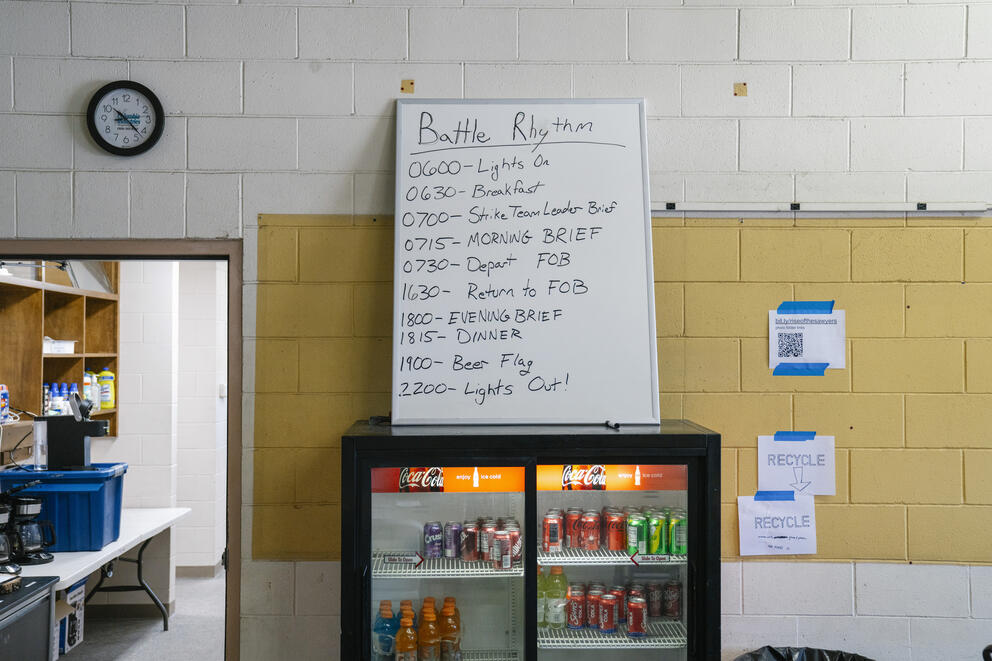 Battle Rhythm
0600-Lights On
0630-Breakfast
0700-Strike Team Leader Brief
0715-MORNING BRIEF
0730-Depart FOB
1630-Return to FOB
1800-EVENING BRIEF
1815-DINNER
1900-Beer Flag
2200-Lights Out!
10 11 12 1 2 3 4 5 6 7 8 9
bit.ly/riseofthesawyers
photo folder links
RECYCLE
RECYCLE
Coca-Cola
enjoy
ice cold
Coca-Cola
enjoy
ice cold
Slide To Open
Slide To Open
Crush